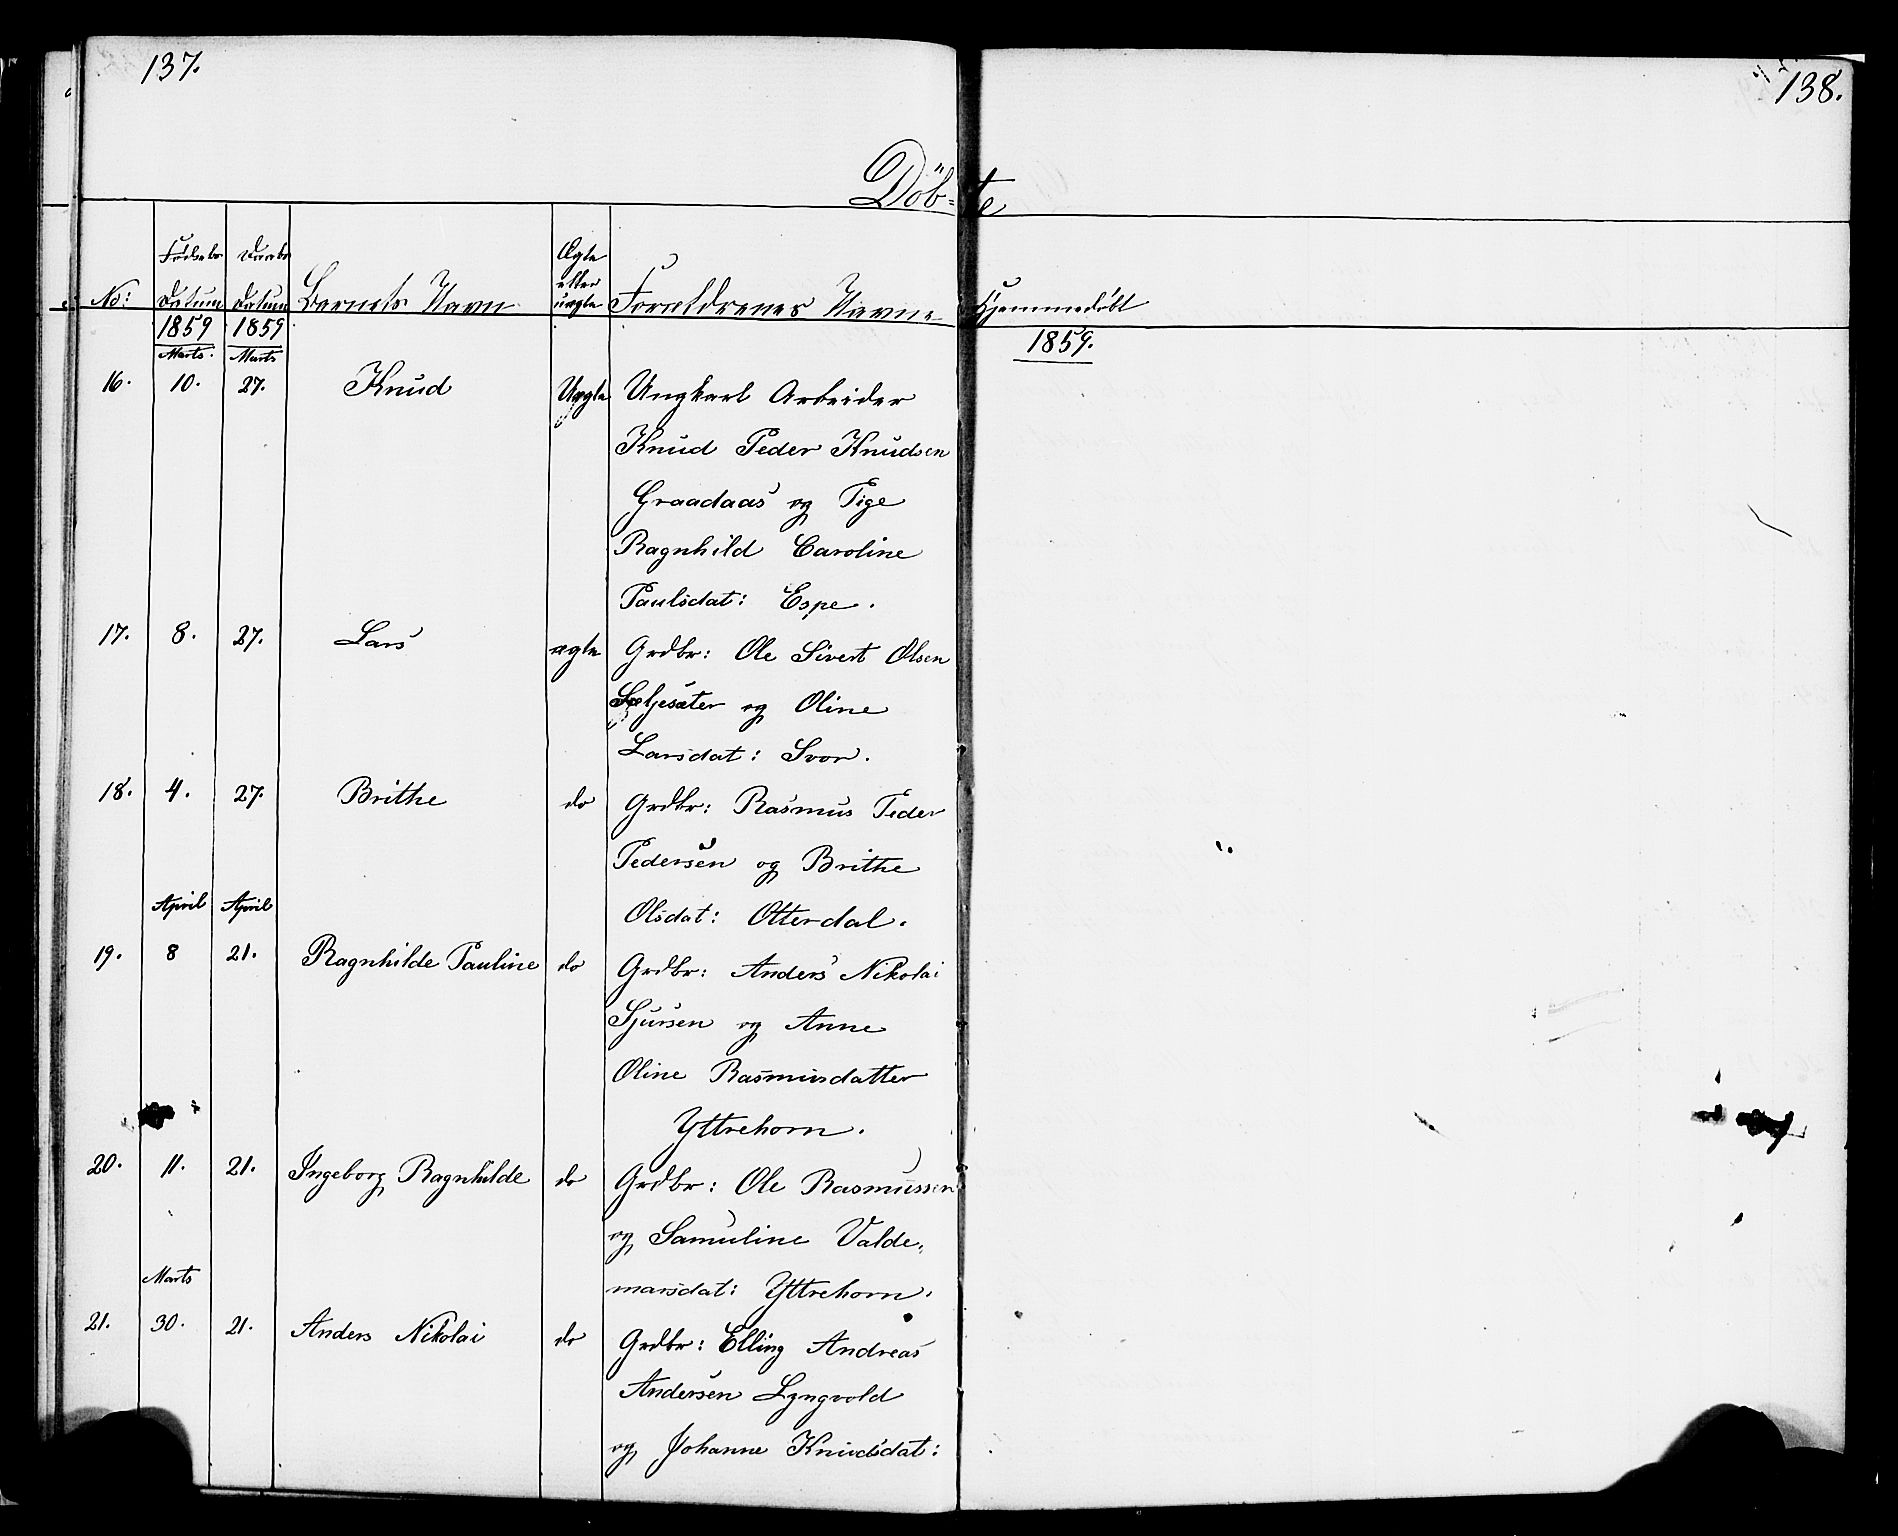 137.
138.
Döb=te
No: Fødsels Datum Daabs Datum Barnets Navn Ægte eller uægte Forældrenes Navne Hjemmedöbt
1859 1859 1859.
Marts. Marts
16. 10. 27. Knud Uægte Ungkarl Arbeider
Knud Peder Knudsen
Graadaas og Pige
Ragnhild Caroline
Paulsdat: Espe.
17. 8. 27. Lars ægte Grdbr: Ole Sivert Olsen
Sæljesæter og Oline
Larsdat: Svor.
18. 4. 27. Brithe do Grdbr: Rasmus Peder
Pedersen og Brithe
April April Olsdat: Otterdal.
19. 8 21. Ragnhilde Pauline do Grdbr: Anders Nikolai
Sjursen og Anne
Oline Rasmusdatter
Yttrehorn.
20. 11. 21. Ingeborg Ragnhilde do Grdbr: Ole Rasmussen
og Samuline Valde,
Marts marsdat: Yttrehorn.
21. 30. 21. Anders Nikolai do Grdbr: Elling Andreas
Andersen Lyngvold
og Johanne Knudsdat: